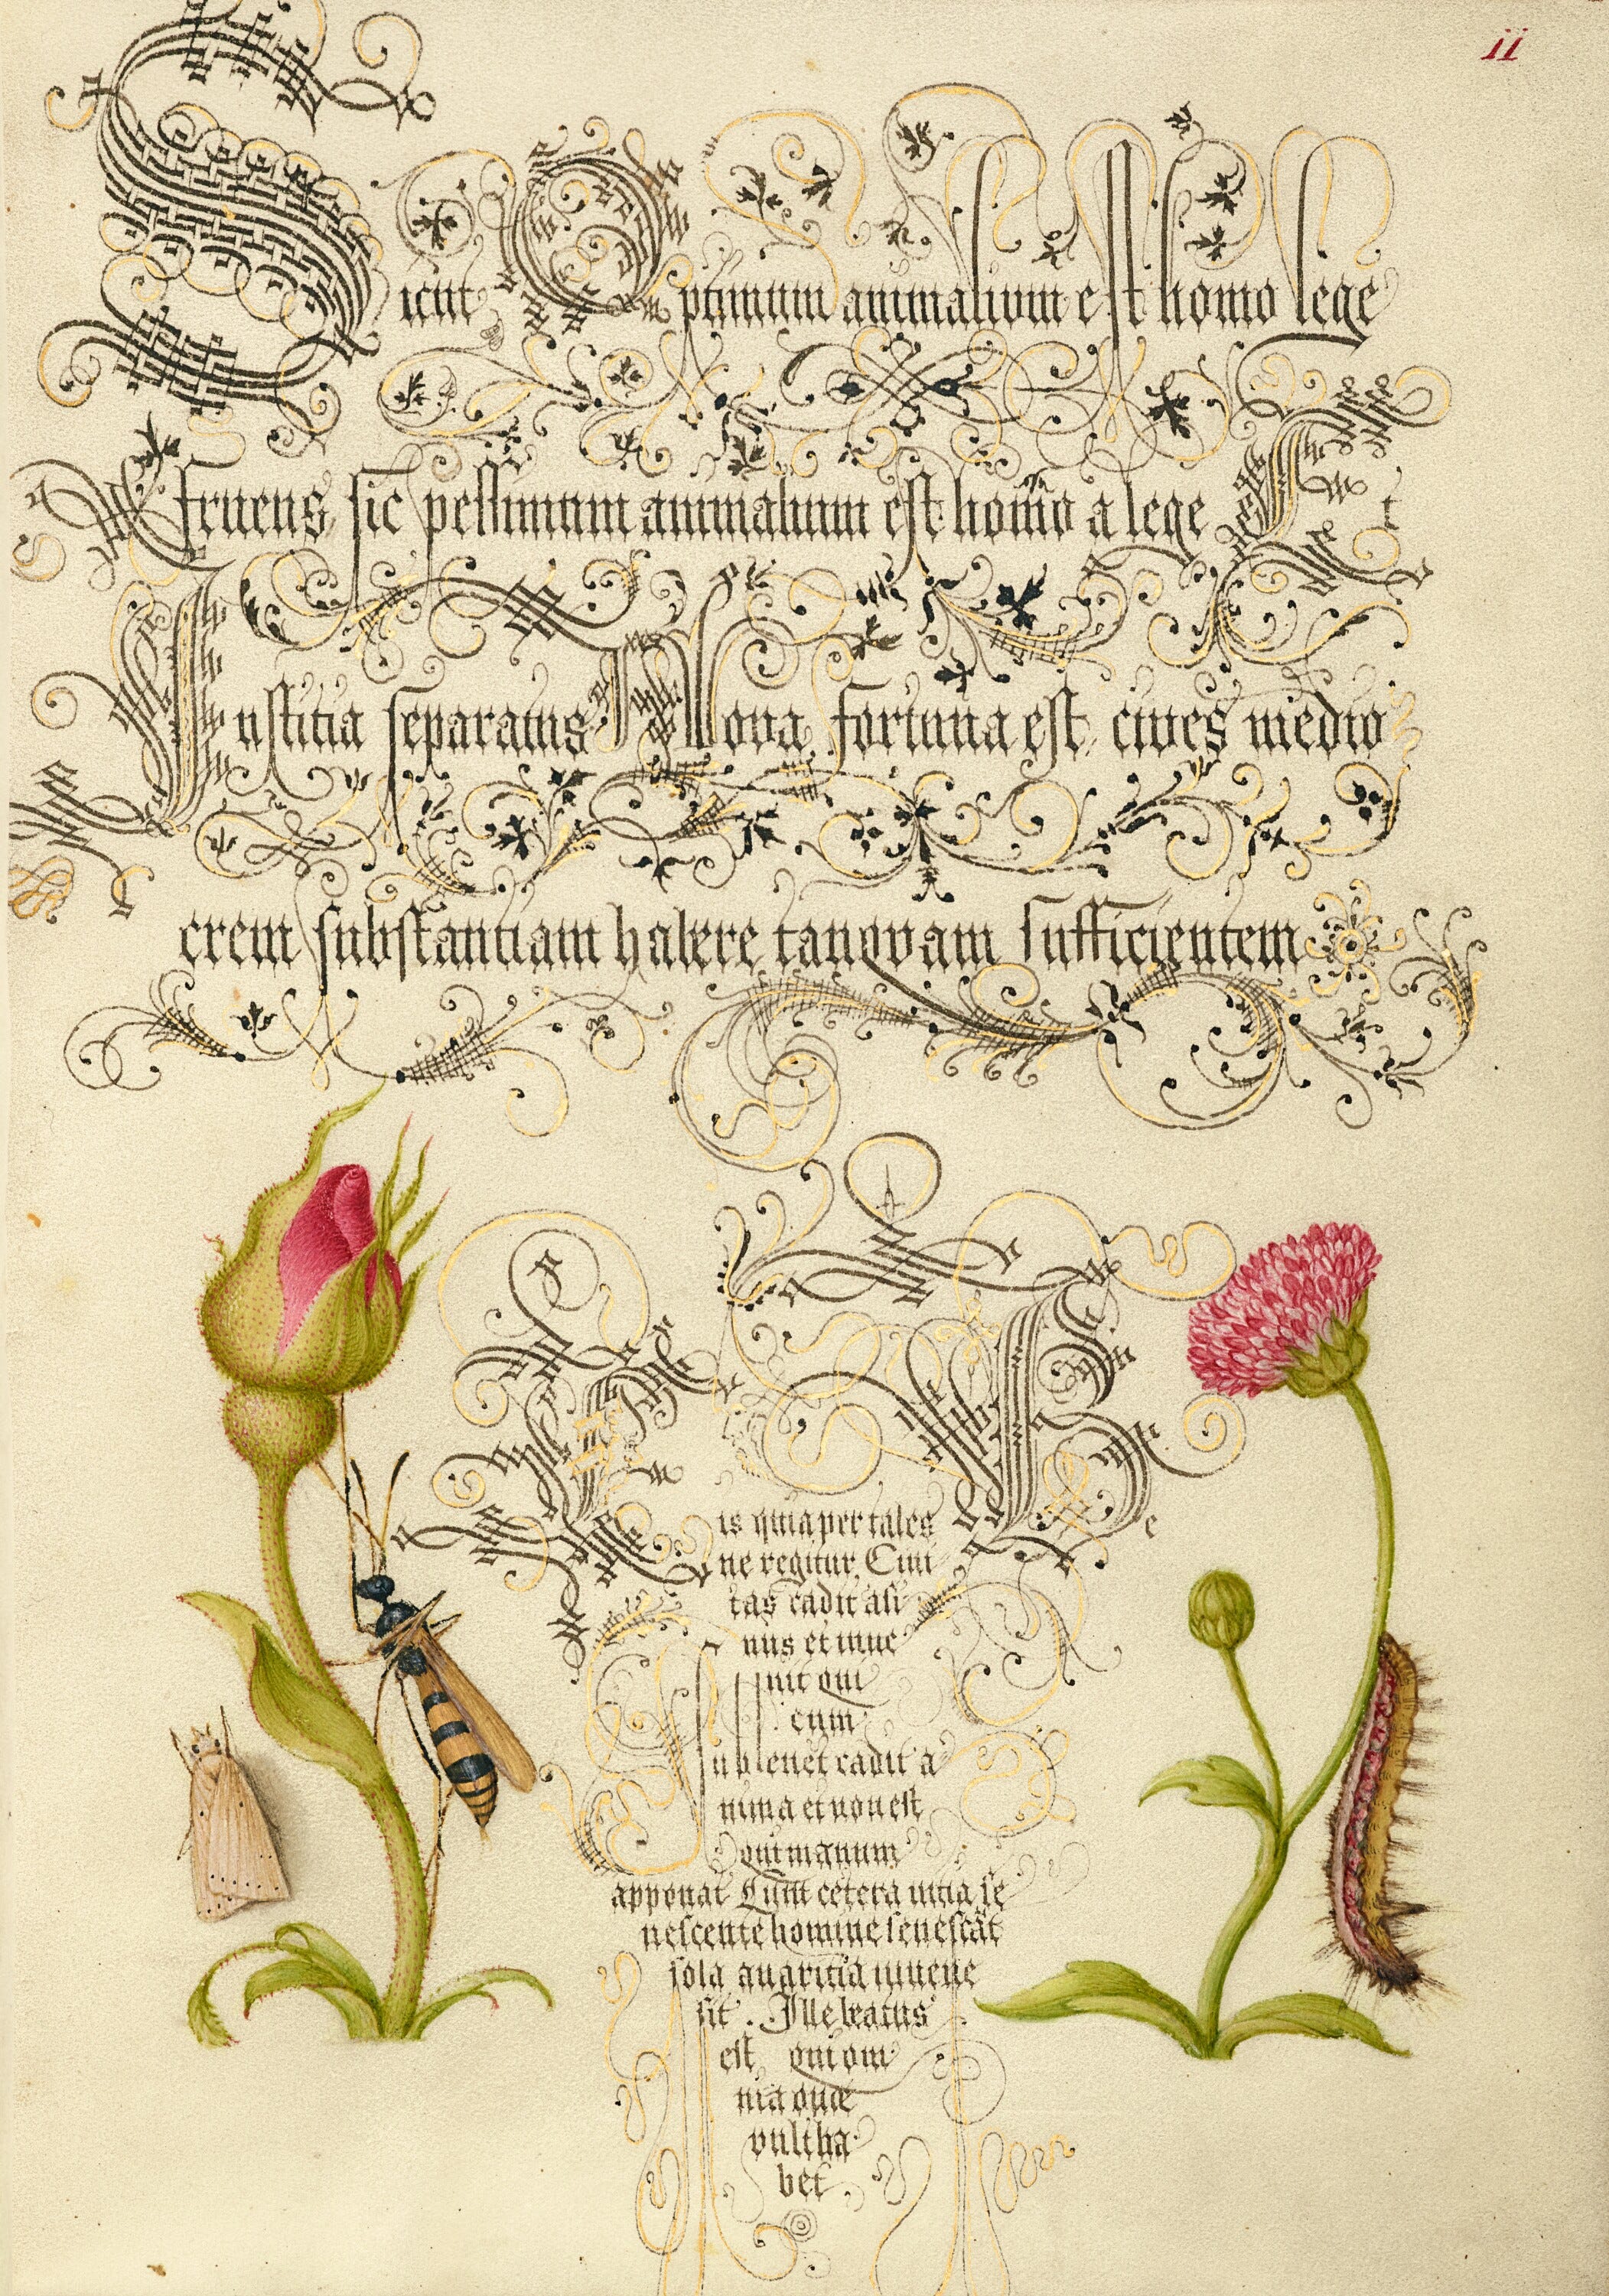 ii
Sicut Optimum animalium est homo lege
fruens, sic pessimum animalium est homo a lege Et
Iustitia separatus. Bona fortuna est, cives medio
crem substantiam habere tanquam sufficientem
is quia per tales Be
ne regitur. Civi
tas cadit asi
nus et inve
nit qui
eum
sublevet cadit a
nima et non est
qui manum
apponat Cum cetera vitia se
nescente homine senescāt
sola avaritia iuvene
sit. Ille beatus
est qui om
nia quæ
vult ha
bet.